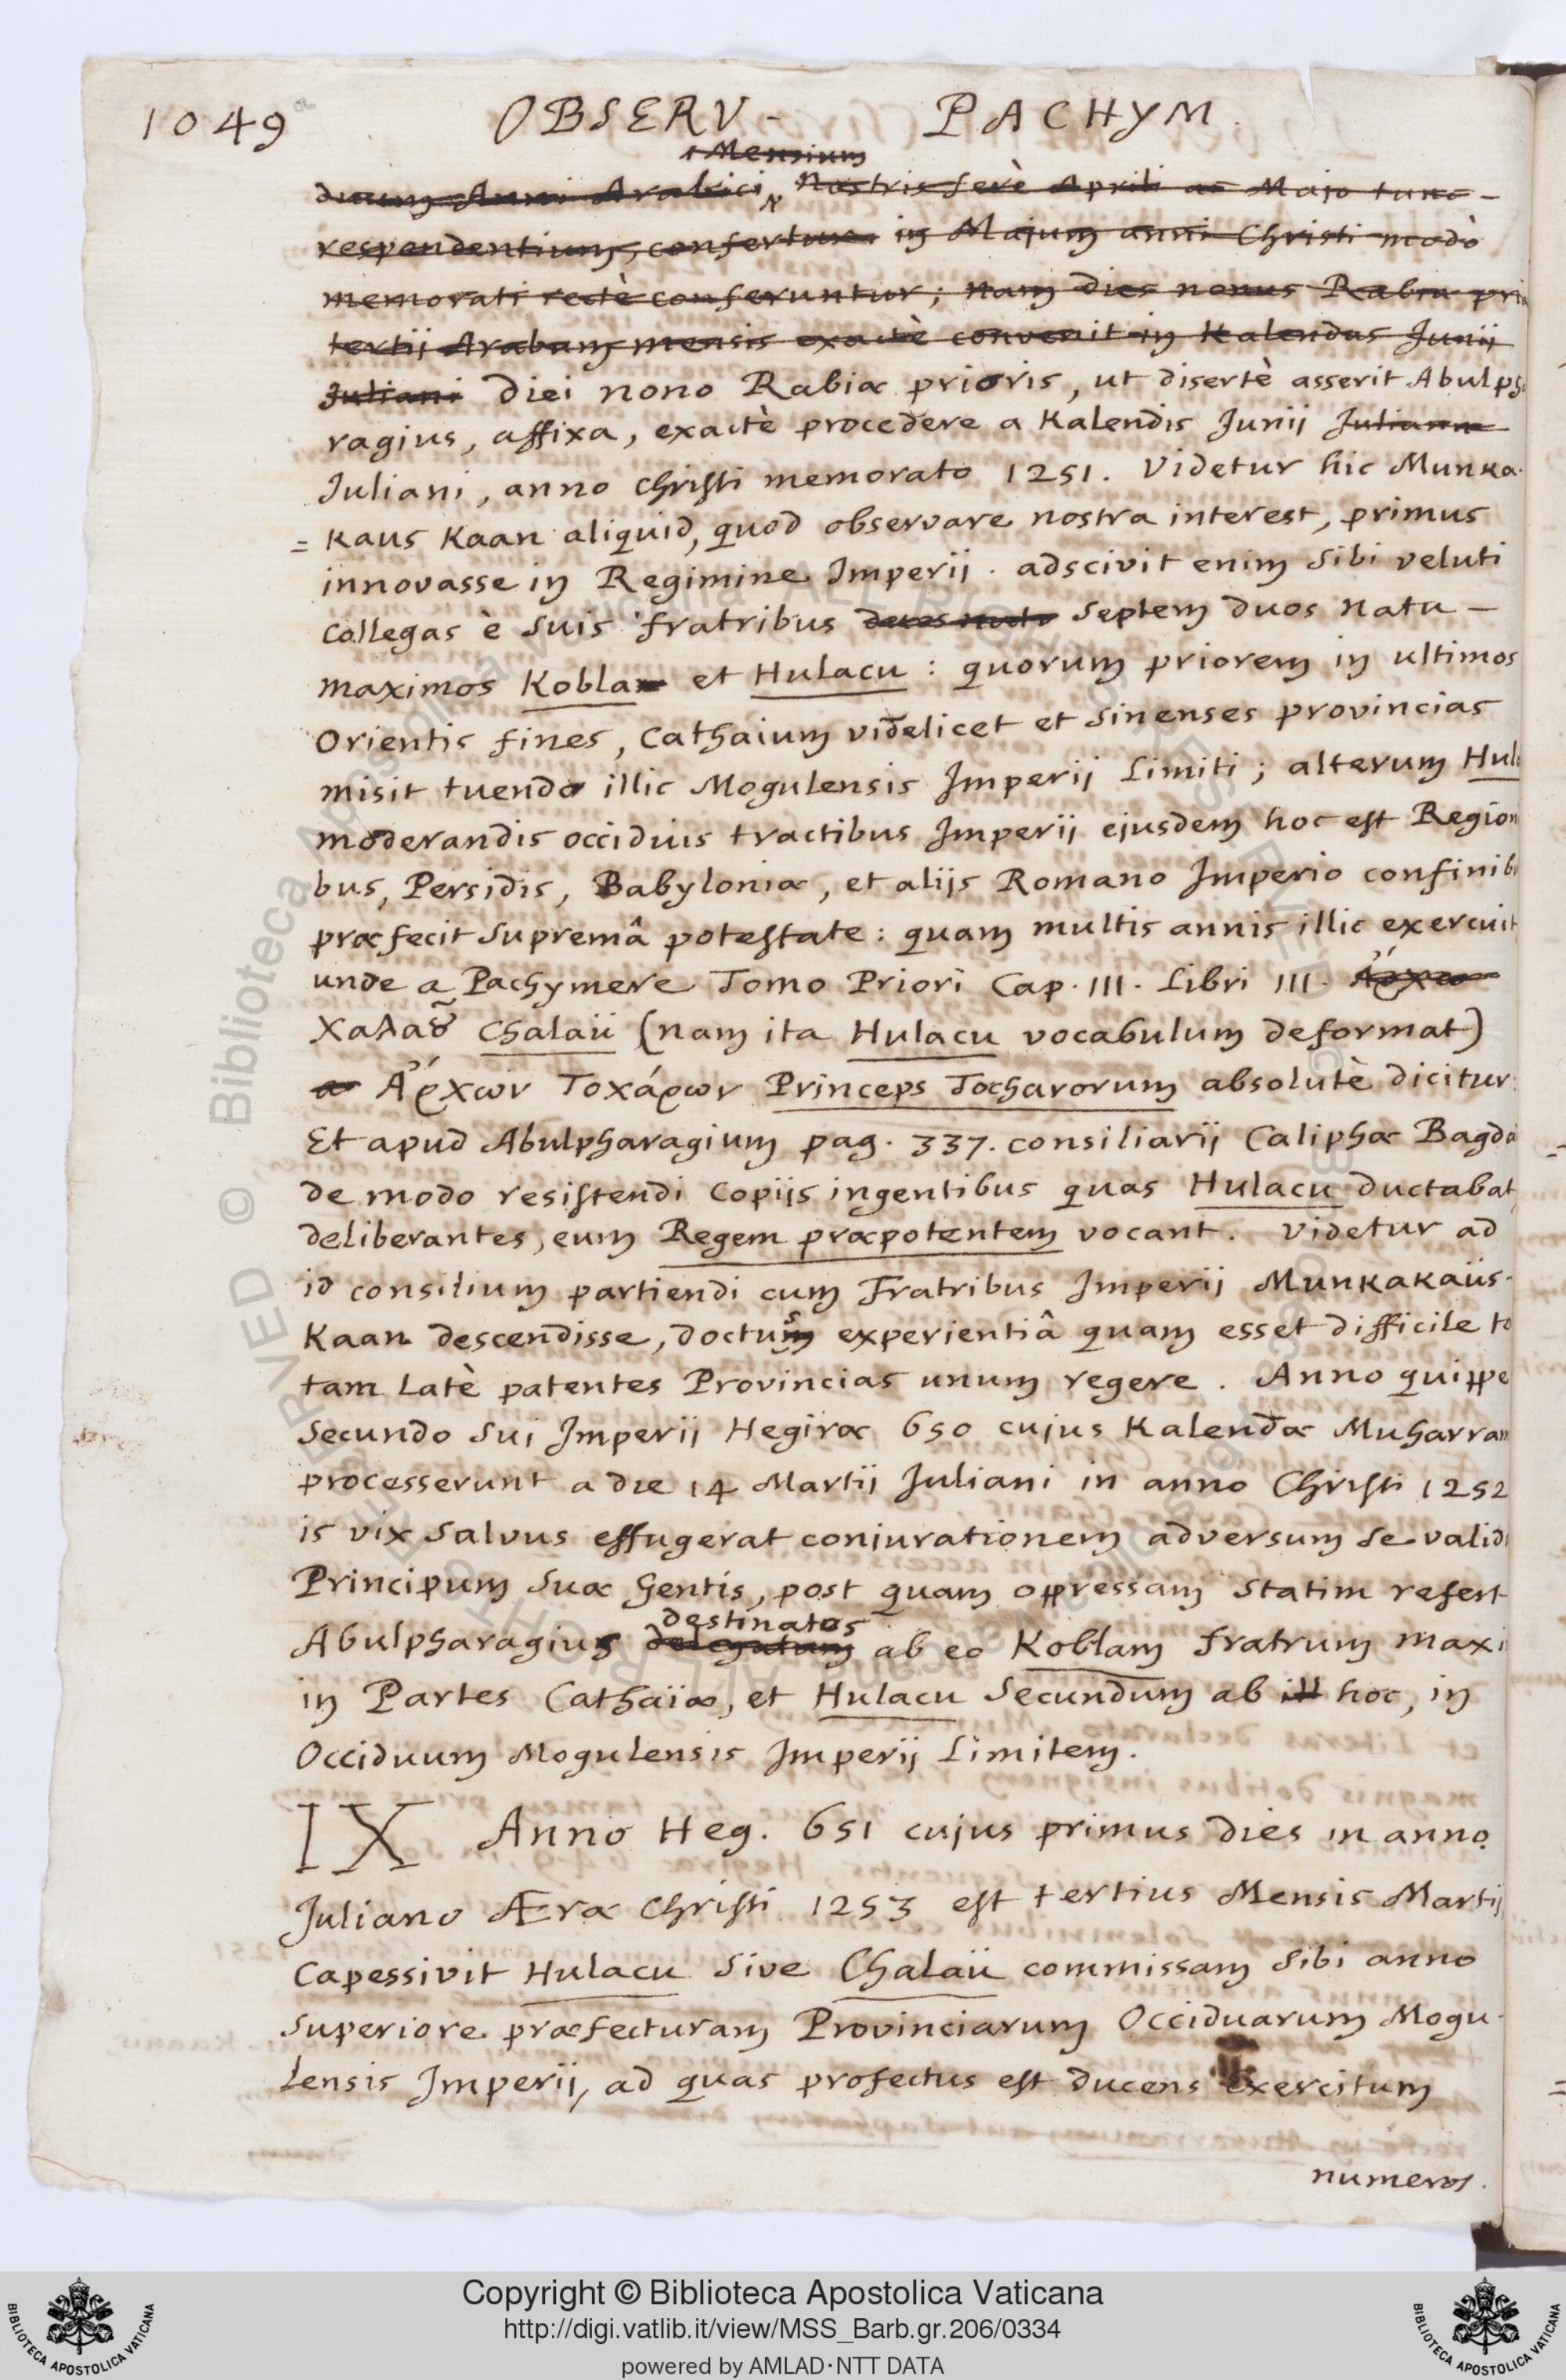 1049 a OBSERV - PACHYM.
Mensium
duum Anni Arabici, nostris ferè Aprili ac Majo tunc -
respondentium, confertur in Majum anni Christi modò
memorati rectè conferuntur; nam dies nonus Rabia
tertij Arabum mensis exactè convenit in Kalendas Junij
Juliani diei nono Rabiæ prioris, ut disertè asserit Abulpha
ragius, affixa, exactè procedere a Kalendis Junij Juliani
Juliani, anno Christi memorato 1251. Videtur hic Munka-
= kaus Kaan aliquid, quod observare nostra interest, primus
innovasse in Regimine Imperij. adscivit enim sibi veluti
collegas è suis fratribus duos natu septem duos natu -
maximos Kobla et Hulacu: quorum priorem in ultimos
Orientis fines, Cathaium videlicet et Sinenses provincias
misit tuendo illic Mogulensis Imperij Limiti; alterum Hula
moderandis occiduis tractibus Imperij ejusdem hoc est Region
bus, Persidis, Babyloniæ, et alijs Romano Imperio confinib
præfecit supremâ potestate: quam multis annis illic exercuit,
unde a Pachymere Tomo Priori Cap. III. Libri III.
Χαλαȣ͂ Chalaü (nam ita Hulacu vocabulum deformat)
Ἄρχων Τοχάρων Princeps Tocharorum absolutè dicitur:
Et apud Abulpharagium pag. 337. consiliarij Caliphæ Bagda
de modo resistendi copijs ingentibus quas Hulacu ductabat,
deliberantes, eum Regem præpotentem vocant. Videtur ad
id consilium partiendi cum Fratribus Imperij Munkakaüs-
Kaan descendisse, doctus experientiâ quam esset difficile to
tam Latè patentes Provincias unum regere. Anno quippe
Secundo Sui Imperij Hegiræ 650 cujus Kalendæ Muharram
processerunt a die 14 Martij Juliani in anno Christi 1252
is vix salvus effugerat conjurationem adversum se valid
Principum Suæ Gentis, post quam oppressam statim refert
destinatos
Abulpharagius delegatum ab eo Koblam fratrum maxi
in Partes Cathaïæ, et Hulacu Secundum ab ill hoc, in
Occiduum Mogulensis Imperij Limitem.
IX Anno Heg. 651 cujus primus dies in anno
Juliano Æræ Christi 1253 est tertius Mensis Martij
Capessivit Hulacu sive Chalaü commissam sibi anno
Superiore præfecturam Provinciarum Occiduarum Mogu-
lensis Imperij, ad quas profectus est ducens exercitum
numeros.
Copyright © Biblioteca Apostolica Vaticana
http://digi.vatlib.it/view/MSS_Barb.gr.206/0334
powered by AMLAD·NTT DATA
BIBLIOTECA APOSTOLICA VATICANA
BIBLIOTECA APOSTOLICA VATICANA